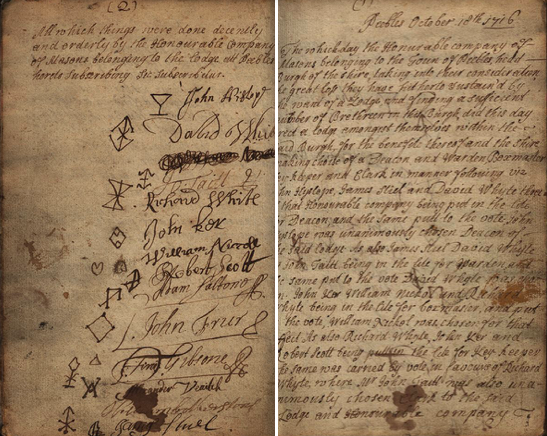 (2)
All which things were done decently
and orderly by the Honourable Company
of Masons belonging to the lodge att Peebles
hereto Subscribing
John
David
Richard White
John Ker
William Nicoll
Robert Scott
Adam
John Frier
Gibsone
Veitch
Peebles October 18th 1716
The which day the Honourable company of
Masons belonging to the Toun of Peebles
Burgh of the shire, taking into their consideration
the great loss they have hitherto Sustain'd by
the want of a Lodge and finding a sufficient
number of Brethren in this Burgh, did this day
a lodge amongst themselves within the
said Burgh, for the benefite thereof and the shire
making choice of a Deacon and Warden Boxmaster
Key keeper and Clark in manner following viz
John Hyslope, James Stiel and David Whyte three
of that Honourable company being put in the lite
of Deacon, and the Same putt to the vote John
was unanimously chosen Deacon of
the said lodge As also James Stiel David Whyte
John Tait being in the lite for Warden and
the same put to the vote David Whyte
John Ker William Nickol and Richard
Whyte being in the lite for boxmaster, and put
to the vote, William Nickol was chosen for that
As also Richard Whyte, John Ker and
Robert Scott being the lite for Key keeper
the same was carried by vote in favours of Richard
Whyte, where Mr John was also una-
nimously chosen to the said
Lodge and Honourable company